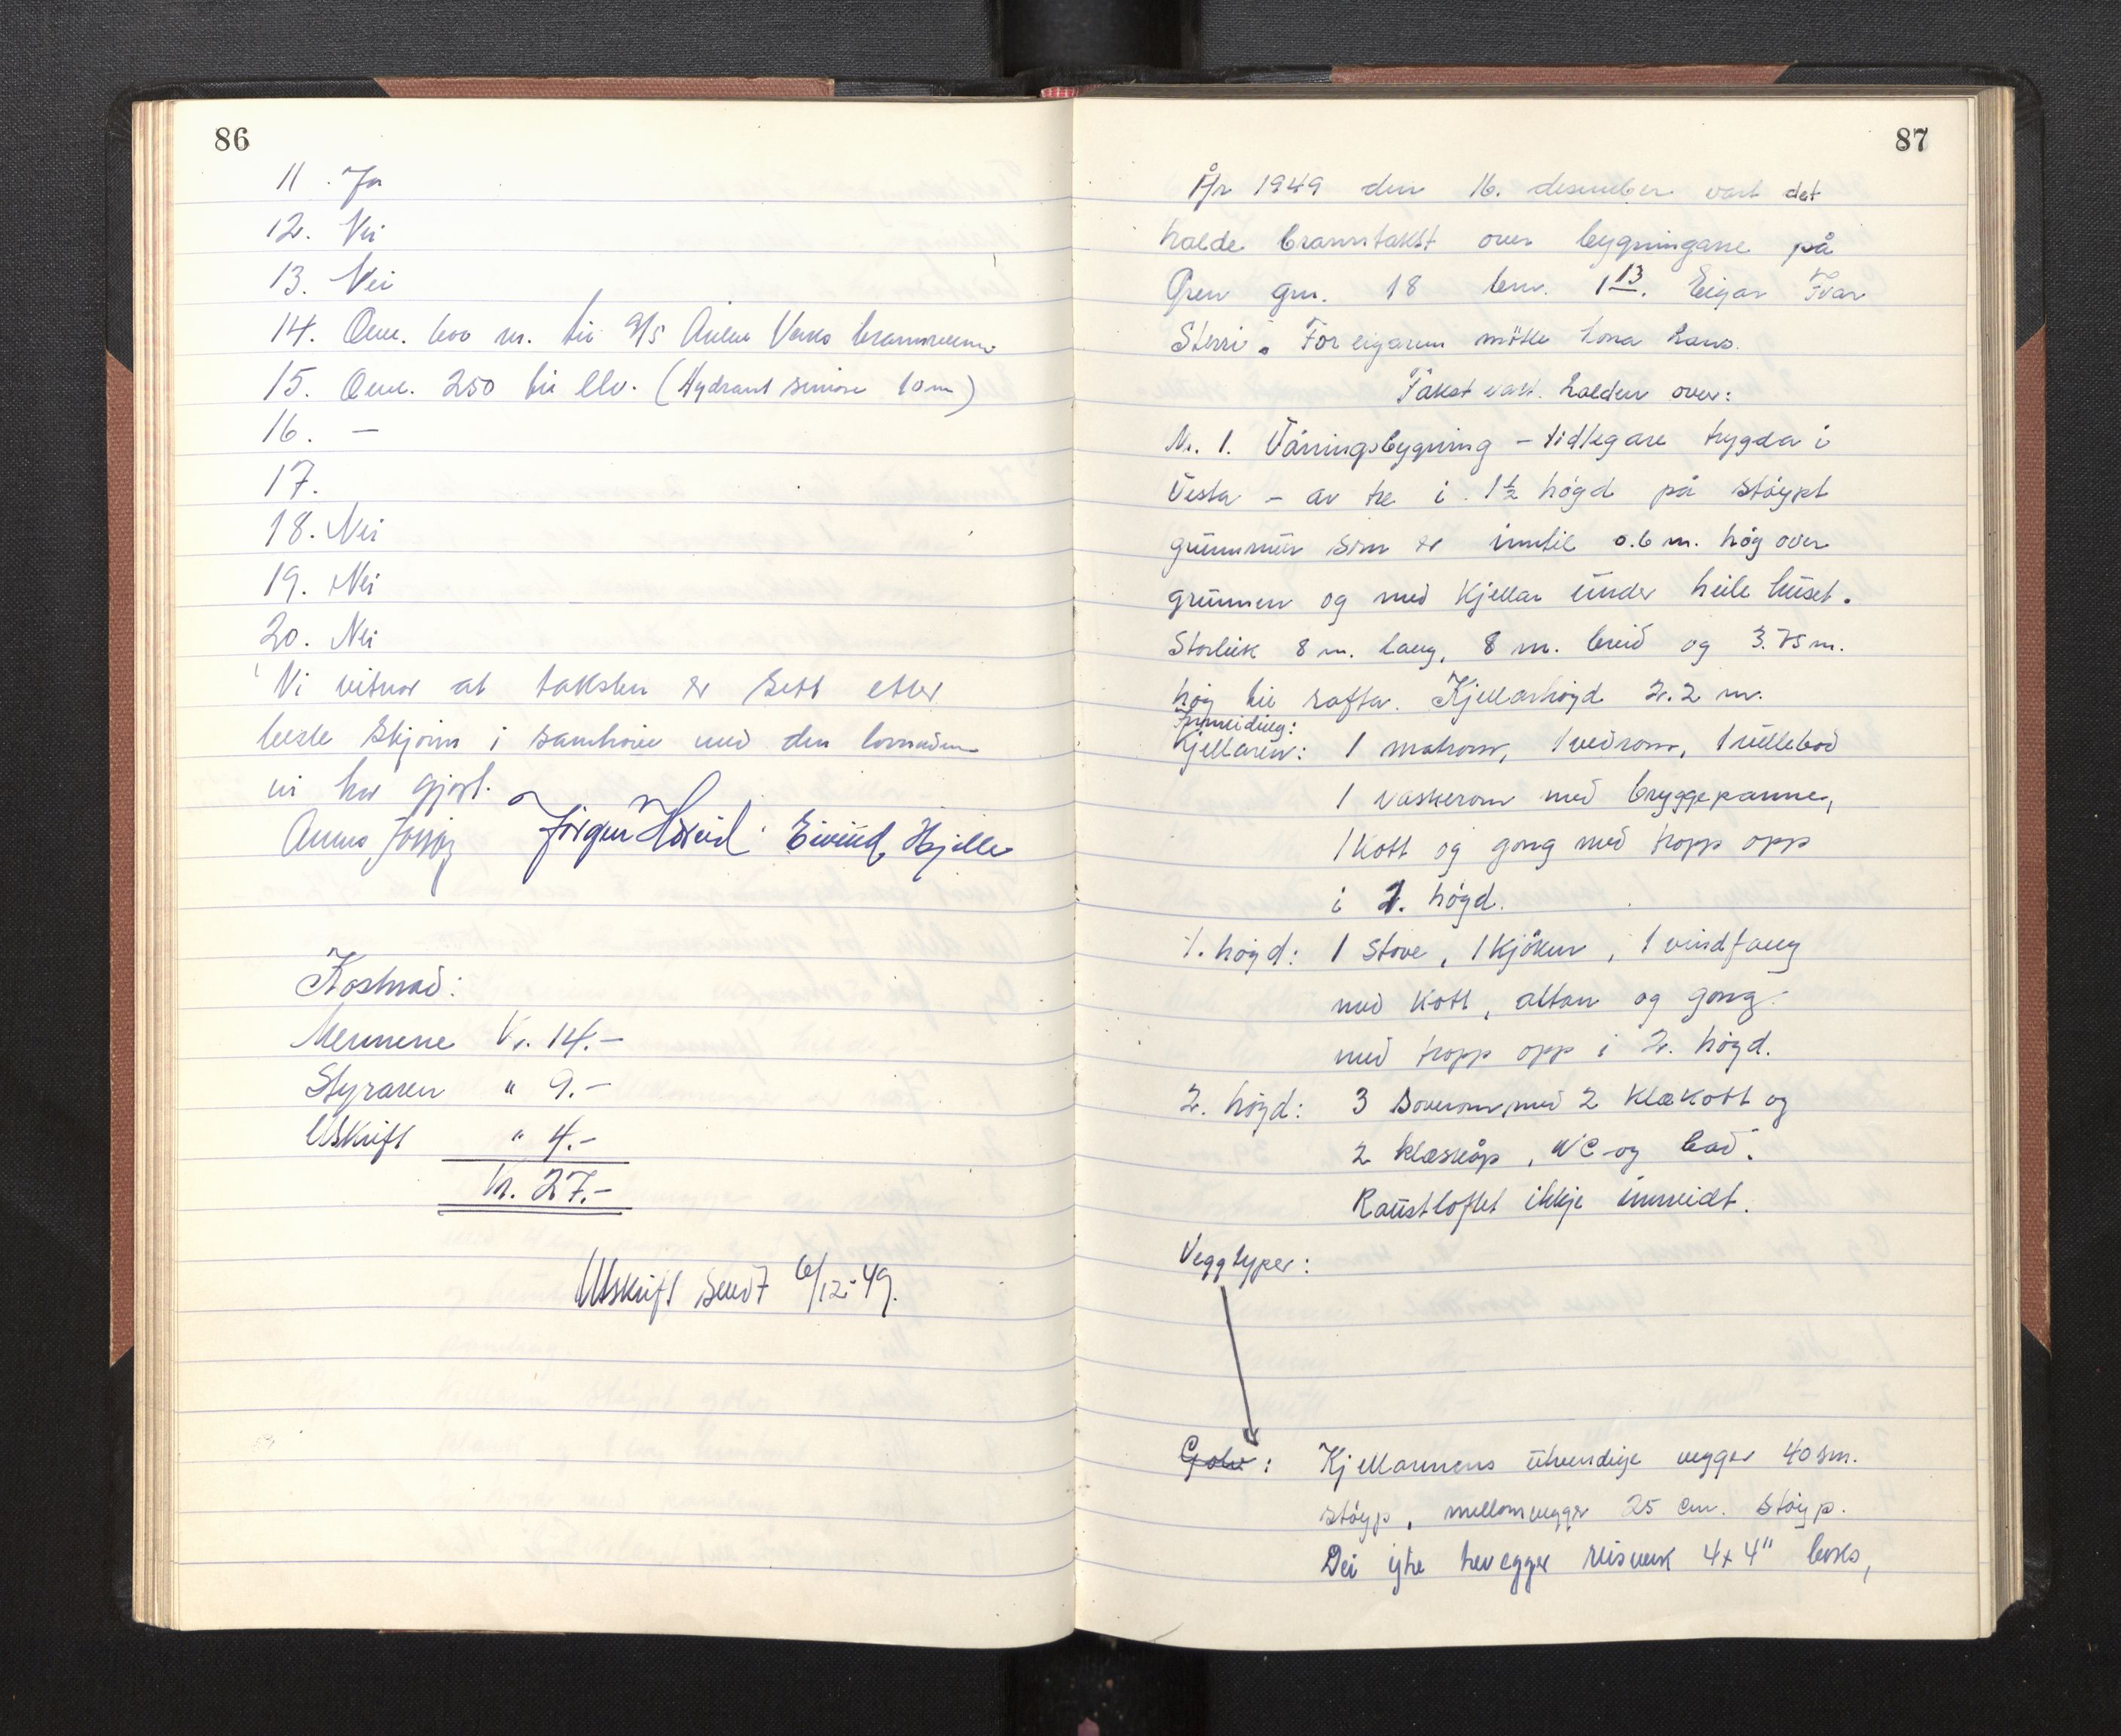 86
11. Ja
12. Nei
13. Nei
14. Oml. 600 m. til A/S Årdal Verks brannvern
15. Oml. 250 til elv. (Hydrant innom 10 m)
16. —
17.
18. Nei
19. Nei
20. Nei
Vi vitnar at taksten er sett etter
beste skjønn i samhøve med den
vi har gjort.
Jørgen Hovid Eivind Hjelle
Kostnad:
Mennene Kr. 14.-
Styraren " 9.-
Utskrift " 4.-
Kr. 27.-
Utskrift sendt 6/12-49.
87
År 1949 den 16. desember vart det
halde branntakst over bygningane på
Øren gnr. 18 bnr. 1 13. Eigar Ivar
Sterri. For eigaren møtte kona hans.
Takst vart halden over:
Nr. 1. Våningsbygning – tidlegare trygda i
Vesta – av tre i 1½ høgd på støypt
grunnmur som er inntil 0.6 m. høg over
grunnen og med kjellar under heile huset.
Storleik 8 m. lang, 8 m. breid og 3.75 m.
høg til rafta. Kjellarhøgd 2.2 m.
Innreiding:
Kjellaren: 1 matrom, 1 vedrom, 1 rullebod
1 vaskerom med bryggepanne,
1 kott og gong med tropp opp
i 1. høgd.
1. høgd: 1 stove, 1 kjøken, 1 vindfang
med kott, altan og gong
med tropp opp i 2. høgd.
2. høgd: 3 soverom med 2 klækott og
2 klæskåp, WC og bad.
Raustloftet ikkje innreidt.
Veggtyper:
Golv: Kjellarmurens utvendige vegger 40 sm.
støyp, mellomvegger 25 cm. støyp.
Dei ytre trevegger reisverk 4x4" boks,